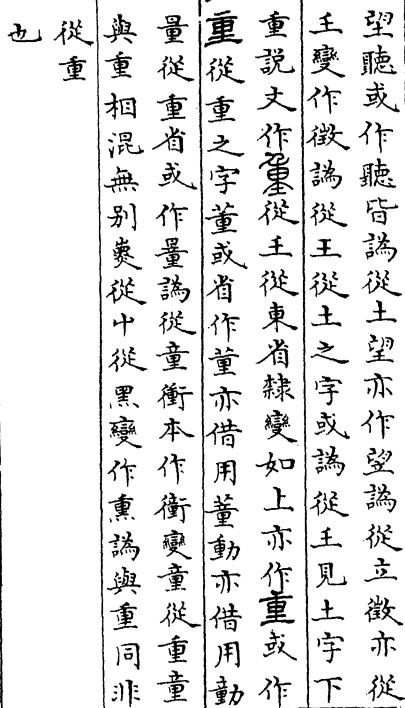 望聽或作聽皆譌從土望亦作朢譌從立徵亦從
𡈼變作徵譌從王從土之字或譌從王見土字下
重說文作𡍺從𡈼從東省隸變如上亦作重或作
重從重之字董或省作董亦借用蕫動亦借用勭
量從重省或作量譌從童衝本作衝變童從重童
與重相混無別𤎅從屮從黑變作熏譌與重同非
從重
也